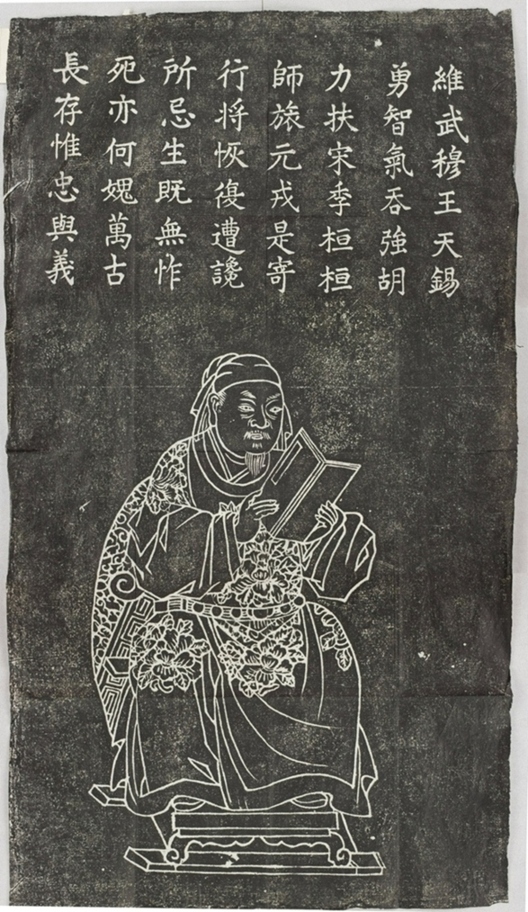 維武穆王天錫
勇智氣吞強胡
力扶宋季桓桓
師旅元戎是寄
行将恢復遭讒
所忌生既無怍
死亦何媿萬古
長存惟忠與義